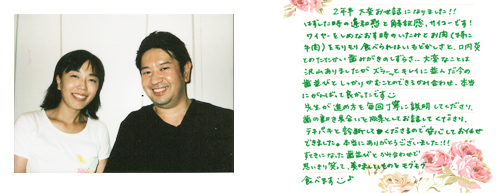 2年半 大変お世話になりました!!
はずした時の違和感と解放感、サイコーです!
ワイヤーをしめなおす時のいたみとお肉(特に
牛肉)をもりもり食べられないもどかしさと、口内炎
とのたたかい 歯みがきのしずらさ… 大変なことは
沢山ありましたが ズラーっとキレイに並んだ今の
歯並びと しっかりかむことのできるかみ合わせ、本当
にがんばって良かったです
先生が 進め方を毎回丁寧に説明してくださり、
歯の動き具合いを 段階としてお話してくださり、
テキパキと診断してくださるので安心しておまかせ
できました。本当にありがとうございました!!!
すてきになった歯並びと かみ合わせで
思いきり笑って、美味しいものをモグモグ
食べます♪